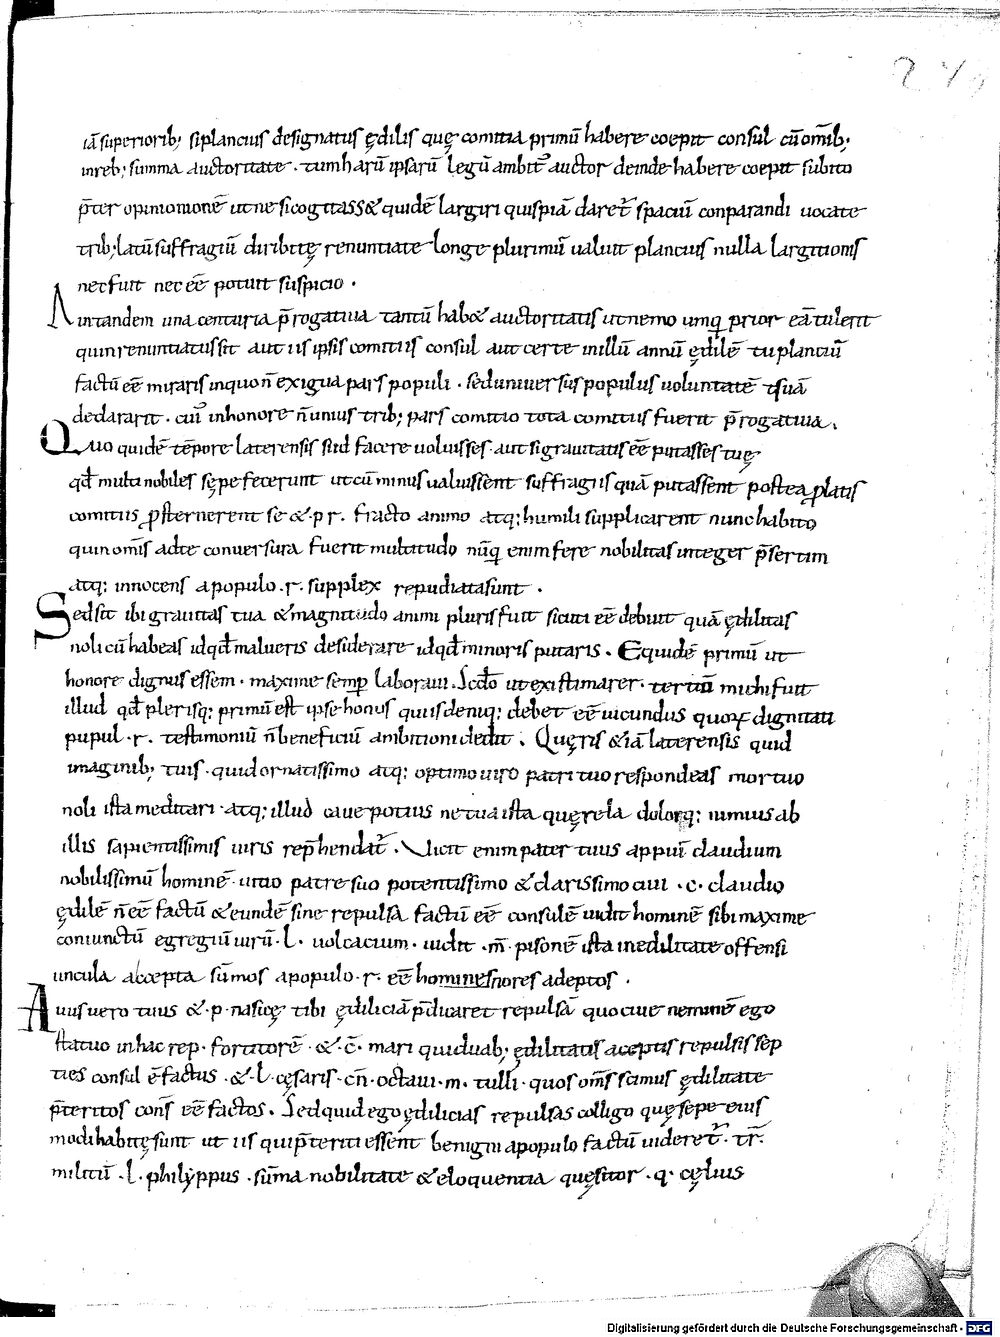 iā superiorib; si plancius designatus ędilis quę comitia primū habere coepit consul cū om̄ib;
in reb; summa auctoritate · tum harū ipsarū legū ambitꝰ auctor deinde habere coepit subito
p̄ter opinionionē ut ne si cogitass& quidē largiri quispiā daret̄ spaciū conparandi uocate
trib; latū suffragiū diribitę renuntiate longe plurimū ualuit plancius nulla largitionis
nec fuit nec eē potuit suspicio ·
An tandem una centuria p̄rogatiua tantū hab& auctoritatis ut nemo umq̄ prior eā tulerit
quin renuntiatus sit aut iis ipsis comitiis consul aut certe in illū annū ędilē tu planciū
factū eē miraris in quo n̄ exigua pars populi · sed uniuersus populus uoluntatē suā
declararit · cuiꝰ in honore n̄ unius trib; pars comitio tota comitiis fuerit p̄rogatiua.
Quo quidē tēpore laterensis si id facere uoluisses · aut si grauitatis eē putasses tuę
qđ multi nobiles sępe fecerunt ut cū minus ualuissent suffragiis quā putassent postea ꝓlatis
comitiis ꝓsternerent se & · p r. fracto animo atq; humili supplicarent nunc habito
quin om̄is ad te conuersura fuerit multitudo nūq̄ enim fere nobilitas integer p̄sertim
atq; innocens a populo · r. supplex repudiata sunt ·
Sed sit ibi grauitas tua & magnitudo animi pluris fuit sicuti eē debuit quā ędilitas
noli cū habeas id qđ malueris desiderare id qđ minoris putaris . Equidē primū ut
honore dignus essem · maxime semp̄ laboraui . Scđo ut existimarer · tertiū michi fuit
illud qđ plerisq; primū est ipse honus qui iis deniq; debet eē iucundus quoꝝ dignitati
pupul · r. testimoniū n̄ beneficiū ambitioni dedit . Quęris & iā laterensis quid
imaginib; tuis · quid ornatissimo atq; optimo uiro patri tuo respondeas mortuo
noli ista meditari · atq; illud caue potius ne tua ista quęrela dolorq; nimius ab
illis sapientissimis uiris rep̄hendat̄ . Vicit enim pater tuus appiū claudium
nobilissimū hominē · uiuo patre suo potentissimo & clarissimo ciui · c · claudio
ędilē n̄ eē factū & eundē sine repulsa factū eē consulē uidit hominē sibi maxime
coniunctū egregiū uirū · l · uolcacium · uidit · m̄ · pisonē ista in edilitate offensi
uncula accepta sūmos a populo · r. eē hominesnores adeptos ·
Auus uero tuus & · p · nasicę tibi ędiliciā p̄dicaret repulsā quo ciue neminē ego
statuo in hac rep · fortiorē · & · c̄ · mari qui duab; ędilitatis aceptis repulsis sep
ties consul ē factus · & · l · cęsaris · cn̄ · octaui · m · tulli · quos om̄s scimus ędilitate
p̄teritos cons̄ eē factos . Sed quid ego ędilicias repulsas colligo quę sepe eius
modi habitę sunt ut iis qui p̄teriti essent benigni a populo factū uideret̄ · tr̄ ·
militū · l · philyppus · sūma nobilitate & eloquentia quęsitor · q · cęlius
Digitalisierung gefördert durch die Deutsche Forschungsgemeinschaft - DFG